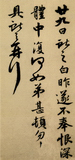 廿九日獻之白昨遂不奉恨深
體中復何如弟甚頓匆匆
不具獻之再拜